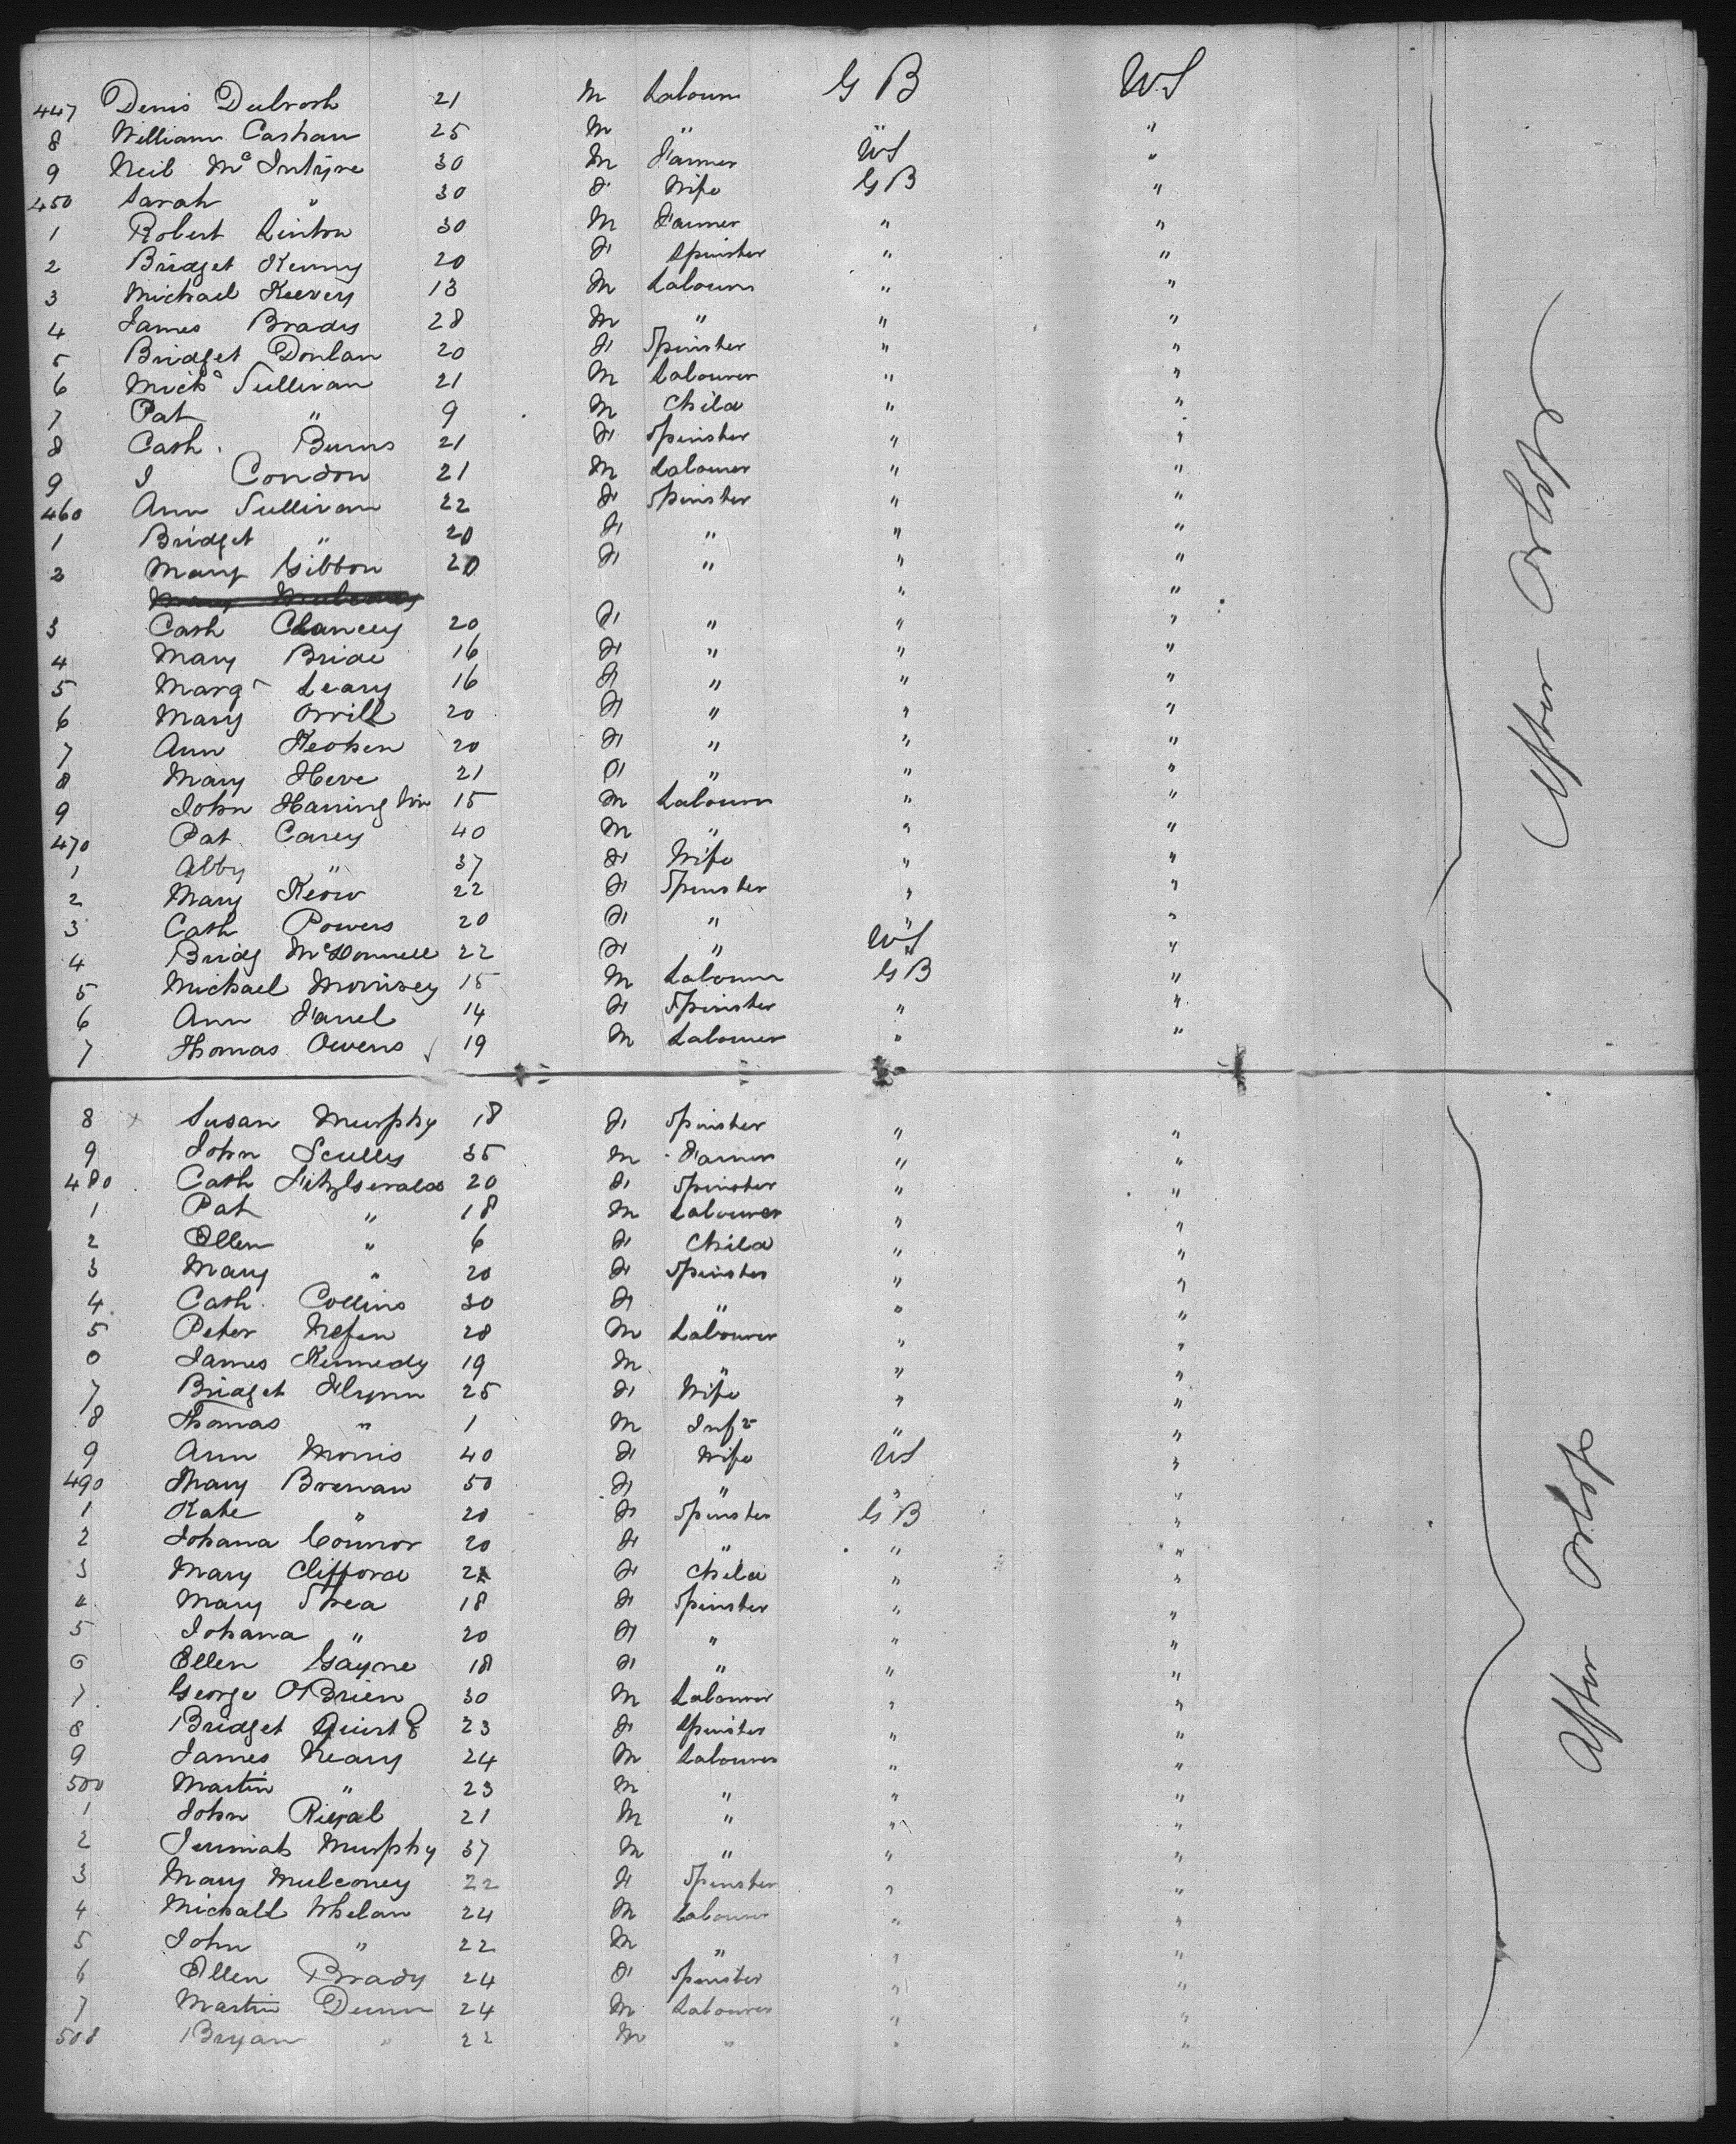 447 Denis Dulrosh 21 M Labourer G B W.S
8 William Cashan 25 M " " "
9 Neil Mc Intyre 30 M Farmer WS "
450 Sarah " 30 F Wife G B "
1 Robert Linton 30 M Farmer " "
2 Bridget Kenny 20 F Spinster " "
3 Michael Keevey 13 M Labourer " "
4 James Brady 28 M " " "
5 Bridget Donlan 20 F Spinster " "
6 Michl Sullivan 21 M Labourer " "
7 Pat " 9 M Child " "
8 Cath. Burns 21 F Spinster " "
9 J Condon 21 M Labourer " "
460 Ann Sullivan 22 F Spinster " "
1 Bridget " 20 F " " "
2 Mary Gibbon 20 F " " "
" "
3 Cath Clancey 20 F " " "
4 Mary Bride 16 F " " "
5 Margt Leary 16 F " " "
6 Mary Orrill 20 F " " "
7 Ann Keohen 20 F " " "
8 Mary Here 21 F " " "
9 John Harrington 15 M Labourer " "
470 Pat Carey 40 M " " "
1 Abby " 37 F Wife " "
2 Mary Keow 22 F Spinster " "
3 Cath Powers 20 F " " "
4 Bridg McDonnell 22 F " WS "
5 Michael Morrisey 15 M Labourer G B "
6 Ann Farrel 14 F Spinster " "
7 Thomas Owens 19 M Labourer " "
After Orlop
8 x Susan Murphy 18 F Spinster " "
9 John Scully 35 M Farmer " "
480 Cath FitzGerald 20 F Spinster " "
1 Pat " 18 M Labourer " "
2 Ellen " 6 F Child " "
3 Mary " 20 F Spinster " "
4 Cath. Collins 30 F " " "
5 Peter 28 M Labourer " "
6 James Kennedy 19 M " " "
7 Bridget Flynn 25 F Wife " "
8 Thomas " 1 M Inft " "
9 Ann Morris 40 F Wife WS "
490 Mary Brenan 50 F " " "
1 Kate " 20 F Spinster G B "
2 Johana Connor 20 F " " "
3 Mary Clifford F Child " "
4 Mary Shea 18 F Spinster " "
5 Johana " 20 F " " "
6 Ellen Gayne 18 F " " "
7 George O'Brien 30 M Labourer " "
8 Bridget 23 F Spinster " "
9 James Neary 24 M Labourer " "
500 Martin " 23 M " " "
1 John 21 M " " "
2 Jerimah Murphy 37 M " " "
3 Mary Mulconey 22 F Spinster " "
4 Michall Whelan 24 M Labourer " "
5 John " 22 M " " "
6 Ellen Brady 24 F Spinster " "
7 Martin Dunn 24 M Labourer " "
508 Bryan " 22 M " " "
After Orlop